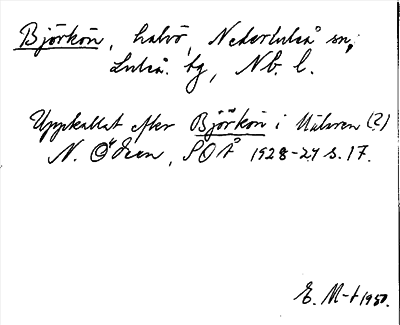 Björkön, halvö, Nederluleå sn,
Luleå tg, Nb. l.
Uppkallat efter Björkön i Mälaren (?)
N. Ödeen, SOÅ 1928-29 s. 17.
E. M-t 1950.